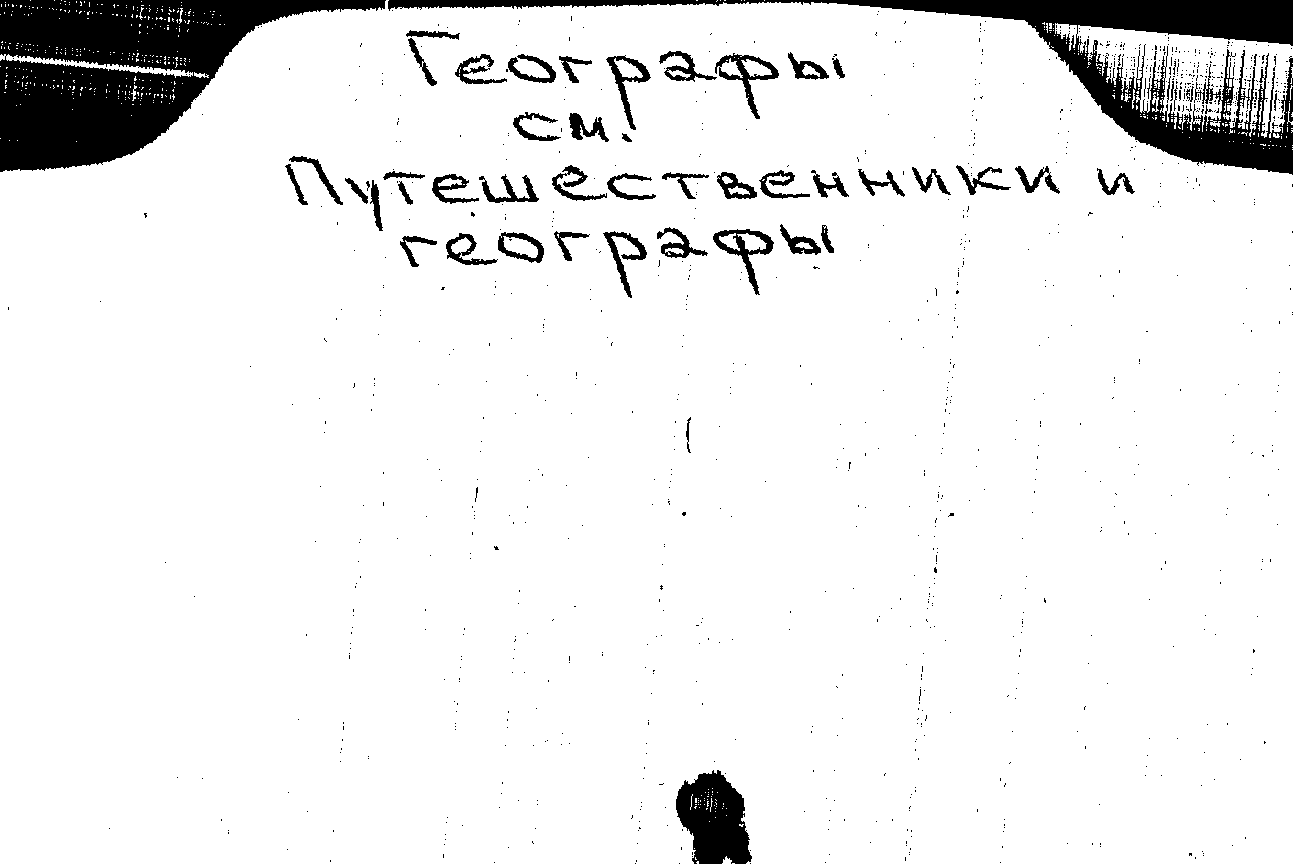 Географы
см.
Путешественники и
географы